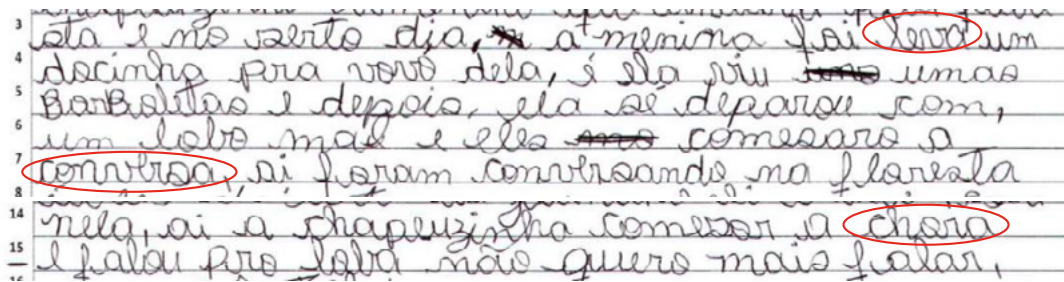 3
sta e no serto dia, a menina foi leva um
4
docinho pra vovó dela, é ela viu umas
5
BorBoletas e depois, ela sé deparou com,
6
um lobo mal e eles comesaro a
7
conversa, ai foram conversando na floresta
8
14
nela, ai a chapeuzinho comesor a chora
15
e falou pro lobo não quero mais falar,
16